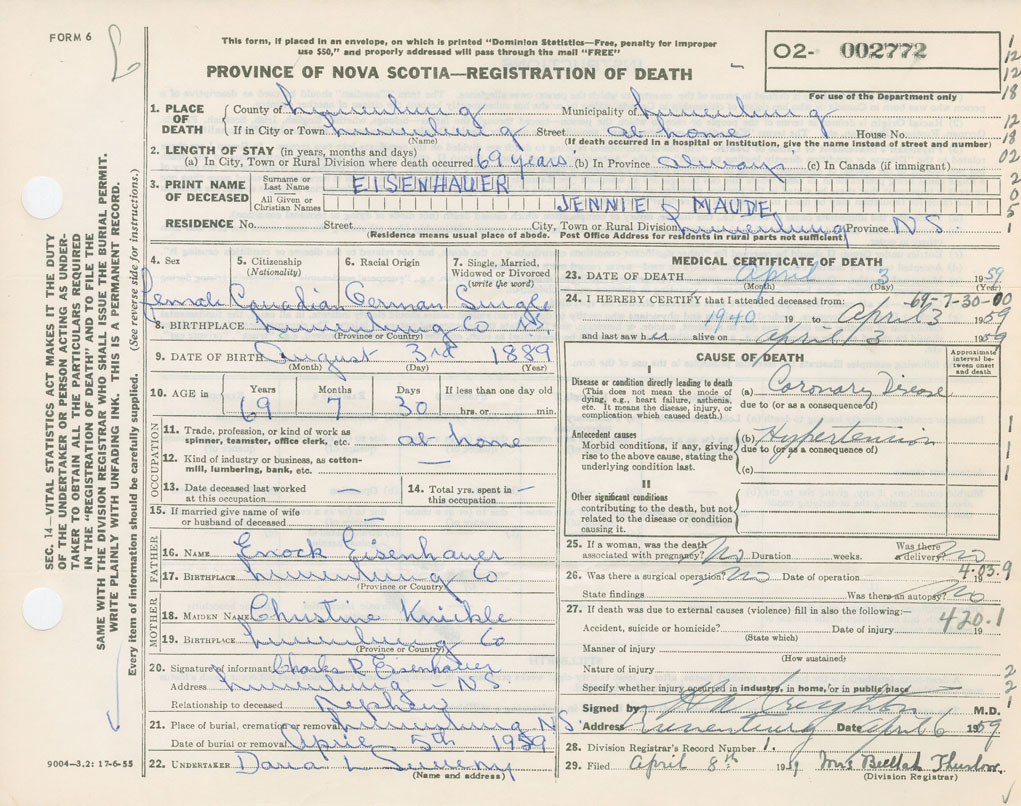 FORM 6
This form, if placed in an envelope, on which is printed "Dominion Statistics—Free, penalty for improper
use $50," and properly addressed will pass through the mail "FREE"
PROVINCE OF NOVA SCOTIA—REGISTRATION OF DEATH
02- 002772
For use of the Department only
1. PLACE OF DEATH
County of Lunenburg Municipality of Lunenburg
If in City or Town Lunenburg Street at home House No.
(Name) (If death occurred in a hospital or institution, give the name instead of street and number)
2. LENGTH OF STAY (in years, months and days)
(a) In City, Town or Rural Division where death occurred 69 years (b) In Province always (c) In Canada (if immigrant)
3. PRINT NAME OF DECEASED
Surname or Last Name EISENHAUER
All Given or Christian Names JENNIE MAUDE
RESIDENCE No. Street City, Town or Rural Division Lunenburg Province N.S.
(Residence means usual place of abode. Post Office Address for residents in rural parts not sufficient)
4. Sex female
5. Citizenship (Nationality) Canadian
6. Racial Origin German
7. Single, Married, Widowed or Divorced (write the word) Single
8. BIRTHPLACE Lunenburg Co N.S.
(Province or Country)
9. DATE OF BIRTH August 3rd 1889
(Month) (Day) (Year)
10. AGE in Years 69 Months 7 Days 30 If less than one day old
hrs. or min.
OCCUPATION
11. Trade, profession, or kind of work as spinner, teamster, office clerk, etc. at home
12. Kind of industry or business, as cotton-mill, lumbering, bank, etc. —
13. Date deceased last worked at this occupation —
14. Total yrs. spent in this occupation —
15. If married give name of wife or husband of deceased —
FATHER
16. NAME Enock Eisenhauer
17. BIRTHPLACE Lunenburg Co
(Province or Country)
MOTHER
18. MAIDEN NAME Christine Knickle
19. BIRTHPLACE Lunenburg Co
(Province or Country)
20. Signature of informant Charles R Eisenhauer
Address Lunenburg - N.S.
Relationship to deceased Nephew
21. Place of burial, cremation or removal Lunenburg, N S
Date of burial or removal April 5th 1959
22. UNDERTAKER
(Name and address)
MEDICAL CERTIFICATE OF DEATH
23. DATE OF DEATH April 3 1959
(Month) (Day) (Year)
24. I HEREBY CERTIFY that I attended deceased from: 69-7-30-00
1940 19 to April 3 1959
and last saw her alive on April 3 1959
CAUSE OF DEATH
Approximate interval between onset and death
I
Disease or condition directly leading to death
(This does not mean the mode of dying, e.g., heart failure, asthenia, etc. It means the disease, injury, or complication which caused death.)
(a) Coronary Disease
due to (or as a consequence of)
Antecedent causes
Morbid conditions, if any, giving rise to the above cause, stating the underlying condition last.
(b) Hypertension
due to (or as a consequence of)
(c)
II
Other significant conditions
contributing to the death, but not related to the disease or condition causing it.
25. If a woman, was the death associated with pregnancy? No Duration weeks. Was there a delivery? No
26. Was there a surgical operation? No Date of operation 19
4.03.9
State findings Was there an autopsy? No
27. If death was due to external causes (violence) fill in also the following:—
420.1
Accident, suicide or homicide? Date of injury 19
(State which)
Manner of injury
(How sustained)
Nature of injury
Specify whether injury occurred in industry, in home, or in public place
Signed by Creighton M.D.
Address Lunenburg Date April 6 1959
28. Division Registrar's Record Number 1.
29. Filed April 8th 1959 Mrs Beulah
(Division Registrar)
SEC. 14—VITAL STATISTICS ACT MAKES IT THE DUTY
OF THE UNDERTAKER OR PERSON ACTING AS UNDER-
TAKER TO OBTAIN ALL THE PARTICULARS REQUIRED
IN THE "REGISTRATION OF DEATH" AND TO FILE THE
SAME WITH THE DIVISION REGISTRAR WHO SHALL ISSUE THE BURIAL PERMIT.
WRITE PLAINLY WITH UNFADING INK. THIS IS A PERMANENT RECORD.
Every item of information should be carefully supplied. (See reverse side for instructions.)
9004—3.2: 17-6-55
1
12
12
18
12
18
02
2
0
5
1
1
1
1
2
2
1